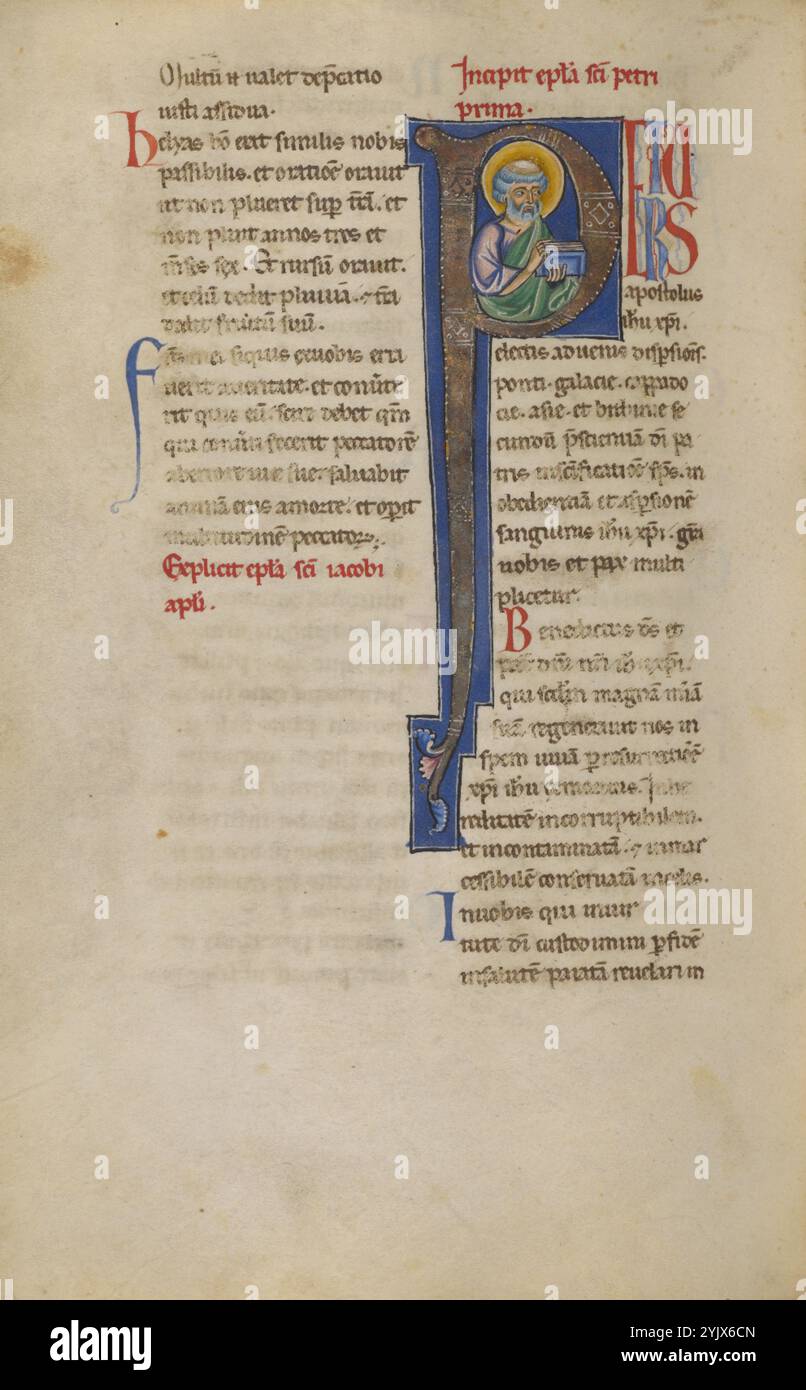 Multũ .n. ualet dep̃catio
iusti assidua.
helyas hõ erat similis nobis
passibilis. et oratiõe orauit
ut non plueret sup̃ tr̃ã. et
non pluit annos tres et
m̃ses sex. Et rursũ orauit.
et celũ dedit pluuiã. et t̃ra
dedit fructũ suũ.
Fr̃s mei siquis ex uobis erra
uerit a ueritate. et conũte
rit quis eũ. scire debet qm̃
qui conũti fecerit peccatorẽ
ab errore uie sue. saluabit
animã eius a morte. et opit
multitudinẽ peccatorꝝ.
Explicit epl̃a sc̃i iacobi
apl̃i.
Incipit epl̃a sc̃i petri
prima.
PETRUS
apostolus
ihũ xp̃i.
electis aduenis disp̃sionis.
ponti. galacie. cappado
cie. asie. et bithinie se
cundũ p̃scienciã dĩ pa
tris in sc̃ificatiõe sp̃s. in
obedienciã et asp̃sionẽ
sanguinis ihũ xp̃i. gr̃a
uobis et pax multi
plicetur.
Benedictus d̃s et
pat̃ dñi nr̃i ihũ xp̃i.
qui sc̃dm magnã m̃iã
suã regenerauit nos in
spem uiuã p̃ resurrectiõẽ
xp̃i ihũ ex mortuis. In he
reditatẽ incorruptibilem.
et incontaminatã. et inmar
cessibilẽ conseruatã in celis.
In uobis qui in uir
tute dĩ custodimini p̃ fidẽ
in salutẽ paratã reuelari in
alamy
Image ID: 2YJX6CN
www.alamy.com